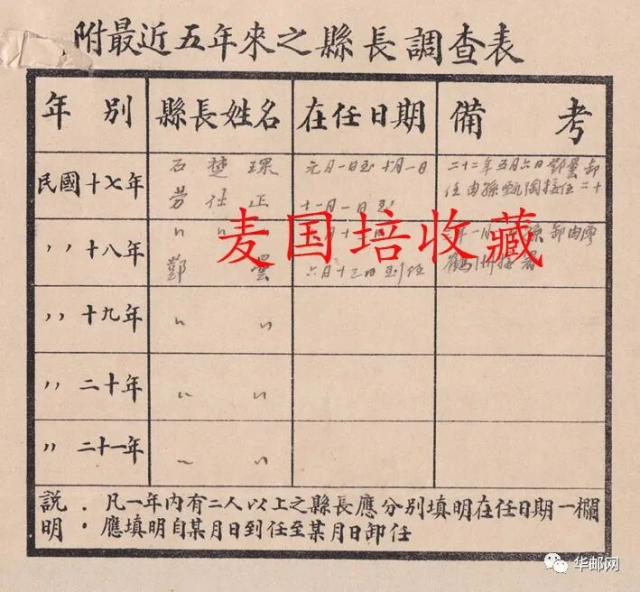 附最近五年來之縣長調查表
年別 縣長姓名 在任日期 備考
民國十七年 石楚琛 元月一日至十月一日 二十二年五月六日鄧曇卸
勞仕正 十一月一日至 任由孫甄陶接任二十
〃十八年 〃 〃
鄧曇 六月十三日到任
麦国培收藏
〃十九年 〃 〃
〃二十年 〃 〃
〃二十一年 〃 〃
説 . 凡一年內有二人以上之縣長應分別填明在任日期一欄
明 . 應填明自某月日到任至某月日卸任
华邮网